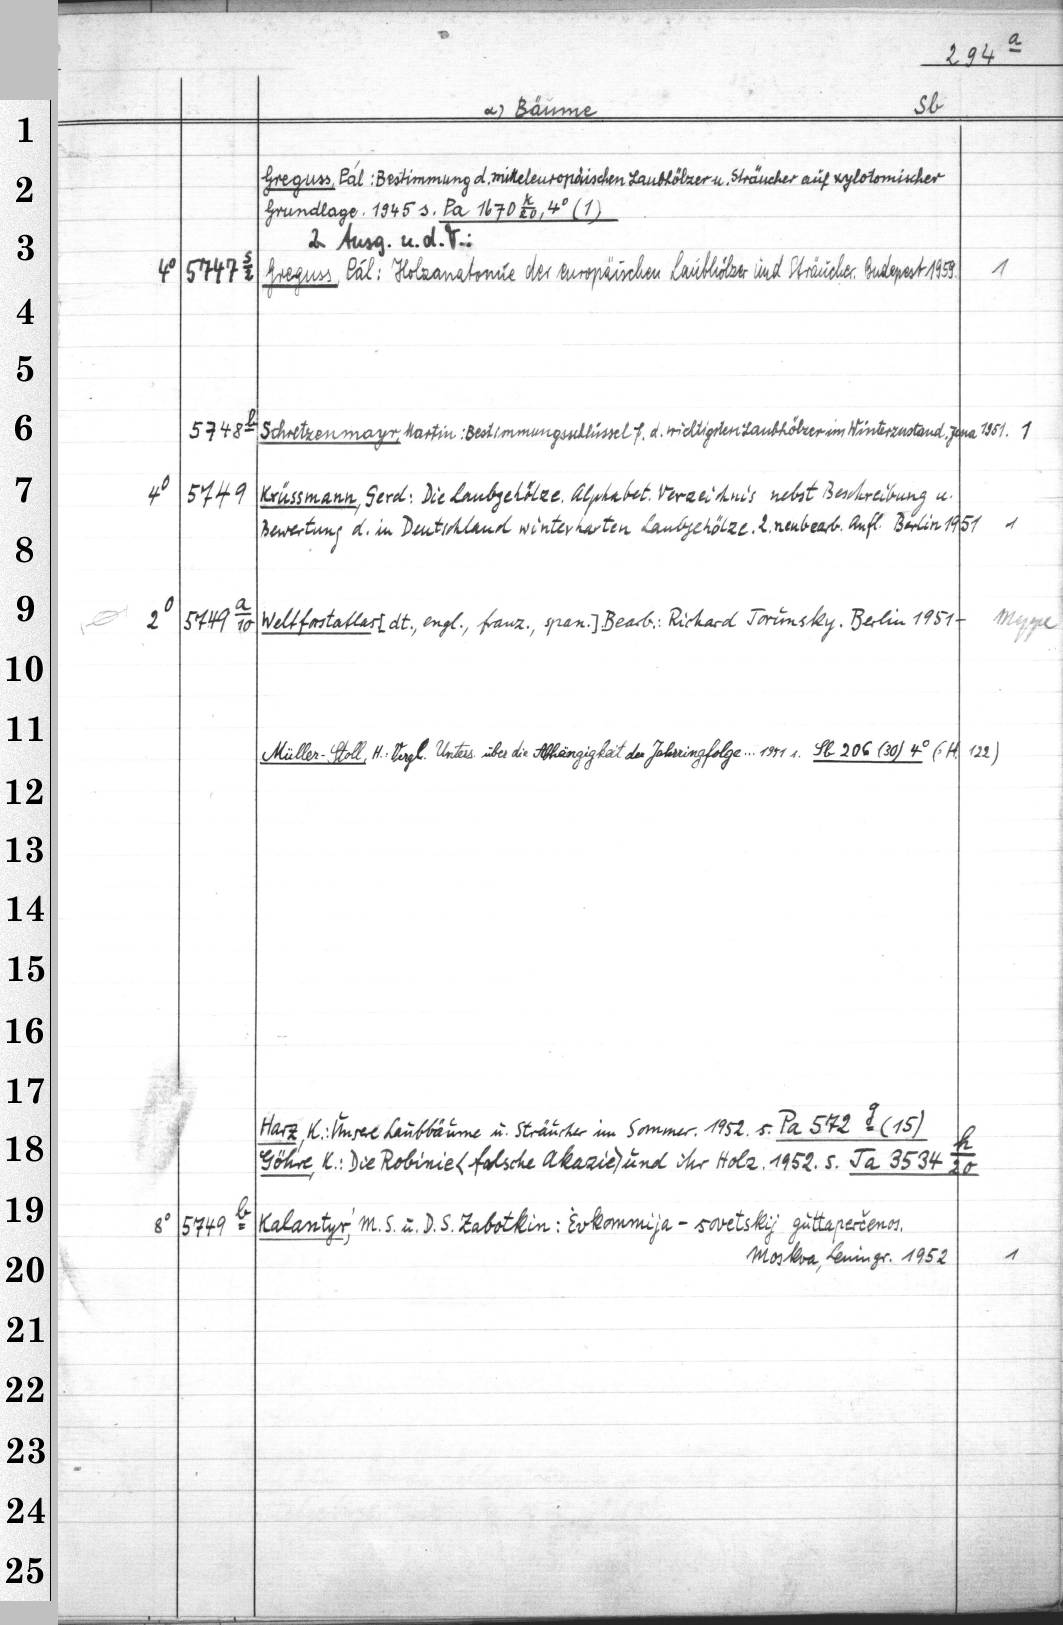 294 a
α) Bäume Sb
1
2 Greguss, Pál : Bestimmung d. mitteleuropäischen Laubhölzer u. Sträucher auf xylotomischer
Grundlage. 1945 s. Pa 1670 k/20, 4° (1)
2. Ausg. u. d. T.:
3 4° 5747 s/2 Greguss, Pál : Holzanatomie der europäischen Laubhölzer und Sträucher. Budapest 1959. 1
4
5
6 5748 b Schretzenmayr, Martin : Bestimmungsschlüssel f. d. wichtigsten Laubhölzer im Winterzustand. Jena 1951. 1
7 4° 5749 Krüssmann, Gerd : Die Laubgehölze. Alphabet. Verzeichnis nebst Beschreibung u.
Bewertung d. in Deutschland winterharten Laubgehölze. 2. neubearb. Aufl. Berlin 1951 1
8
9 2° 5749 a/10 Weltforstatlas [dt., engl., franz., span.] Bearb.: Richard Torunsky. Berlin 1951- Mappe
10
11 Müller-Stoll, H.: Vergl. Unters. über die Abhängigkeit der Jahrringfolge ... 1951 s. Sb 206 (30) 4° (: H. 122)
12
13
14
15
16
17
Harz, K.: Unsere Laubbäume u. Sträucher im Sommer. 1952. s. Pa 572 q (15)
18 Göhre, K.: Die Robinie (falsche Akazie) und ihr Holz. 1952. s. Ja 3534 k/20
19 8° 5749 b Kalantyr', M. S. u. D. S. Zabotkin : Evkommija - sovetskij guttaperčenos.
20 Moskva, Leningr. 1952 1
21
22
23
24
25